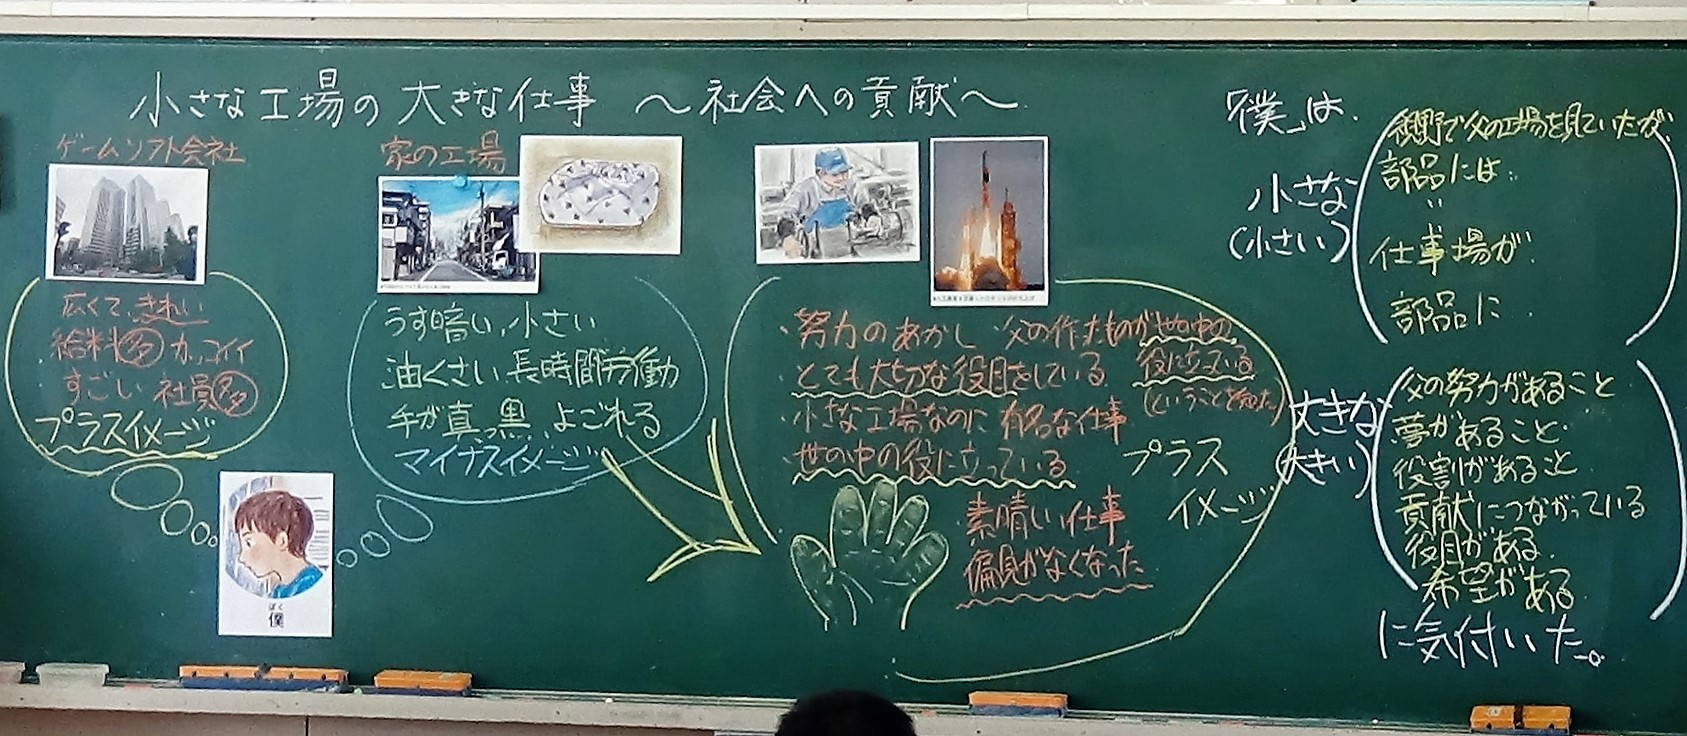 小さな工場の大きな仕事 ～社会への貢献～
ゲームソフト会社
広くて、きれい
給料多 カッコイイ
すごい 社員多
プラスイメージ
ぼく
僕
家の工場
うす暗い、小さい
油くさい、長時間労働
手が真っ黒、よごれる
マイナスイメージ
・努力のあかし
・とても大切な役目をしている
・小さな工場なのに有名な仕事
・世の中の役に立っている
・父の作ったものが世の中の
役に立っている
(ということを知った)
プラス
イメージ
素晴しい仕事
偏見がなくなった
「僕」は、
小さな
(小さい)
視野で父の工場を見ていたが、
部品には
〃
仕事場が
部品に
大きな
(大きい)
父の努力があること
夢があること
役割があること
貢献につながっている
役目がある
希望がある
に気付いた。